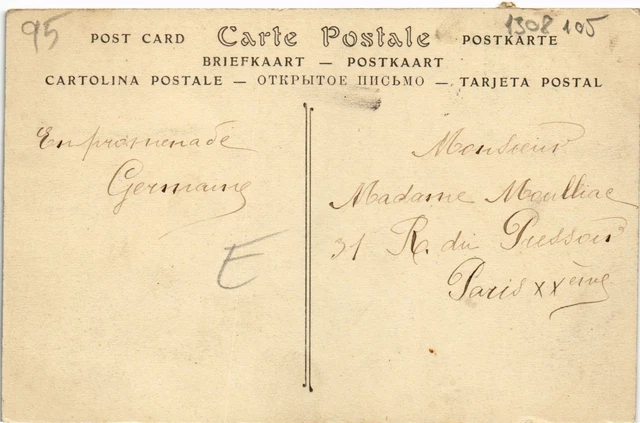 95
1308 105
POST CARD Carte Postale POSTKARTE
BRIEFKAART — POSTKAART
CARTOLINA POSTALE — ОТКРЫТОЕ ПИСЬМО — TARJETA POSTAL
En promenade
Germaine
E
Monsieur
Madame Moulliac
31 R. du Pressoir
Paris XXème